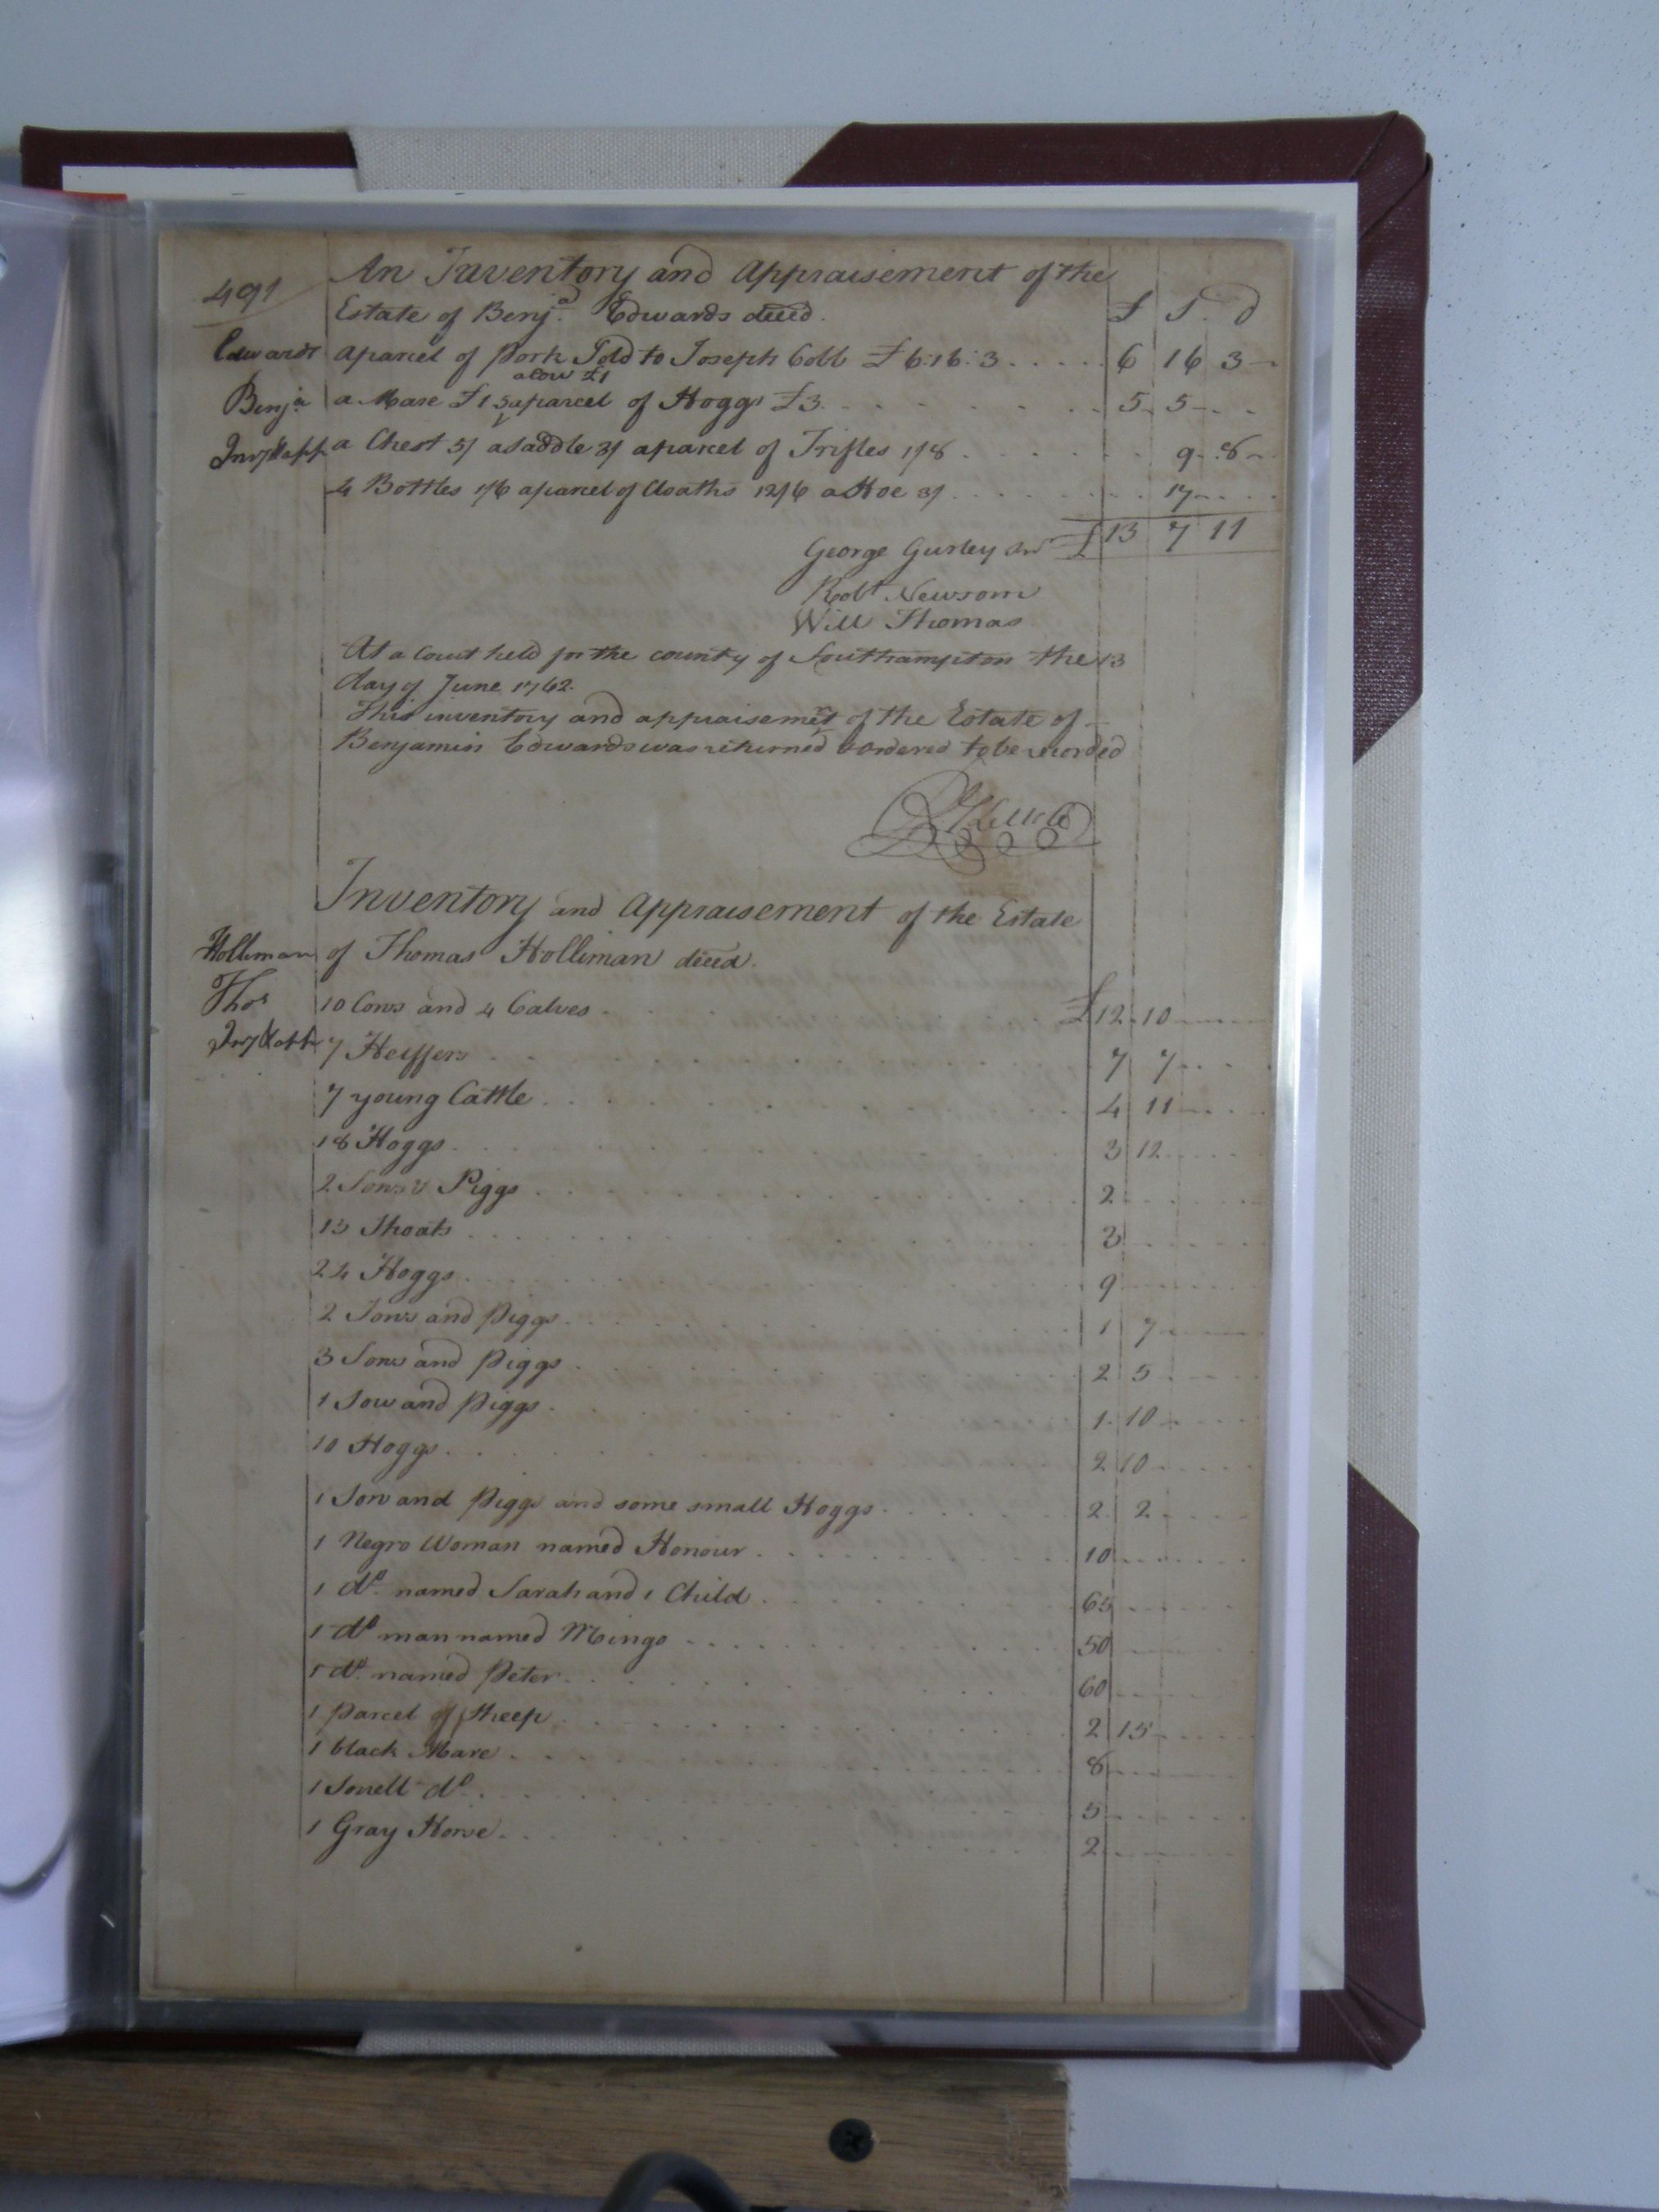 491
An Inventory and Appraisement of the
Estate of Benja. Edwards deced. £ S. d
Edwards aparcel of Pork Sold to Joseph Cobb £6:16:3 6 16 3
acow £1
Benja a Mare £1 5 aparcel of Hoggs £3. 5 5
Inv & app a Chest 5/ asaddle 3/ aparcel of Trifles 1/8 9 8
4 Bottles 1/6 aparcel of Cloaths 12/6 a Hoe 3/ 17
George Gurley £13 7 11
Robt Newsom
Will Thomas
At a Court held for the county of Southampton the 13
day of June 1762.
This inventory and appraisemnt of the Estate of
Benjamin Edwards was returned & ordered to be recorded
Inventory and Appraisement of the Estate
Holliman of Thomas Holliman deced.
Thos 10 Cows and 4 Calves £12 10
Inv & app 7 Heiffers 7 7
7 young Cattle 4 11
18 Hoggs 3 12
2 Sows & Piggs 2
13 Shoats 3
24 Hoggs 9
2 Sows and Piggs 1 7
3 Sows and Piggs 2 5
1 Sow and Piggs 1 10
10 Hoggs 2 10
1 Sow and Piggs and some small Hoggs 2 2
1 Negro Woman named Honour 10
1 do. named Sarah and 1 Child 65
1 do man named Mingo 50
1 do. named Peter 60
1 Parcel of Sheep 2 15
1 black Mare 8
1 Sorrell do. 5
1 Gray Horse 2